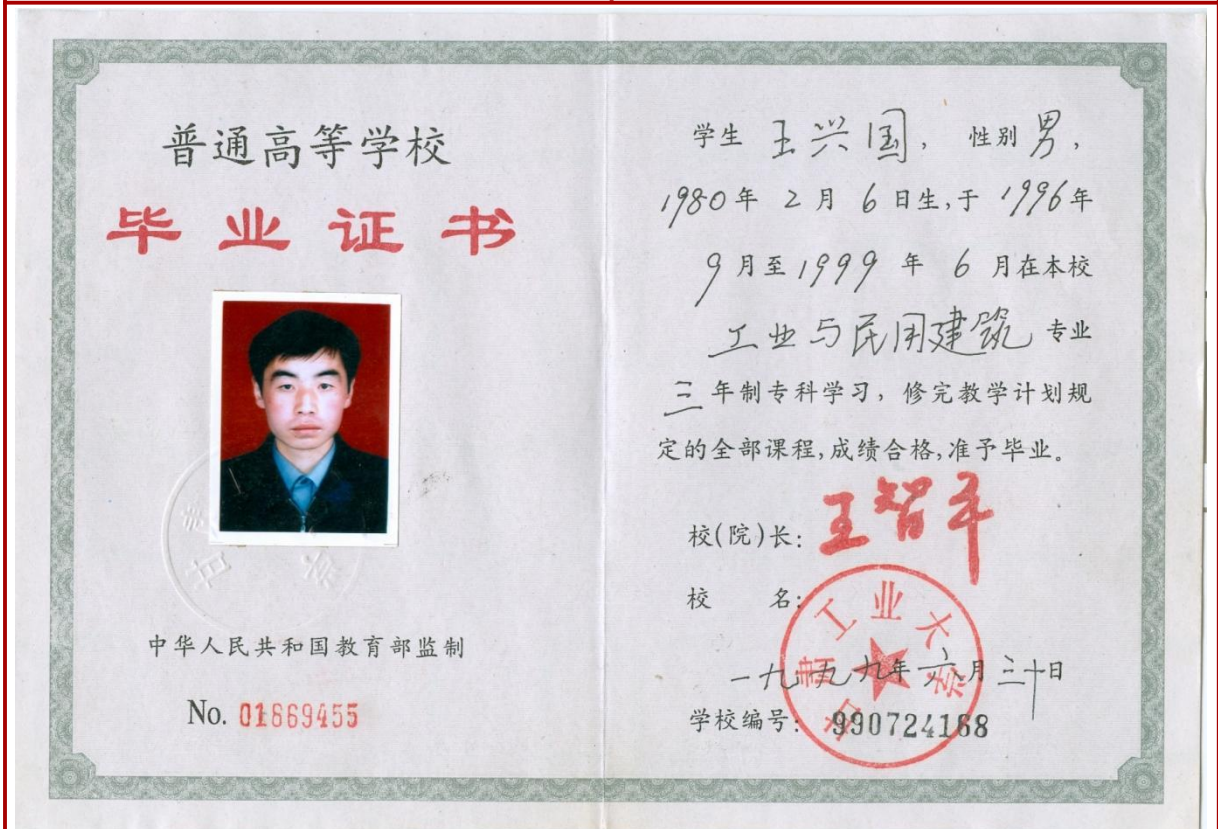 普通高等学校
毕业证书
中华人民共和国教育部监制
No. 01869455
学生 王兴国, 性别 男,
1980年 2月 6日生,于 1996年
9月至1999年 6月在本校
工业与民用建筑 专业
三年制专科学习, 修完教学计划规
定的全部课程,成绩合格,准予毕业。
校(院)长: 王智平
校 名:
甘肃工业大学
一九九九年六月三十日
学校编号: 990724168